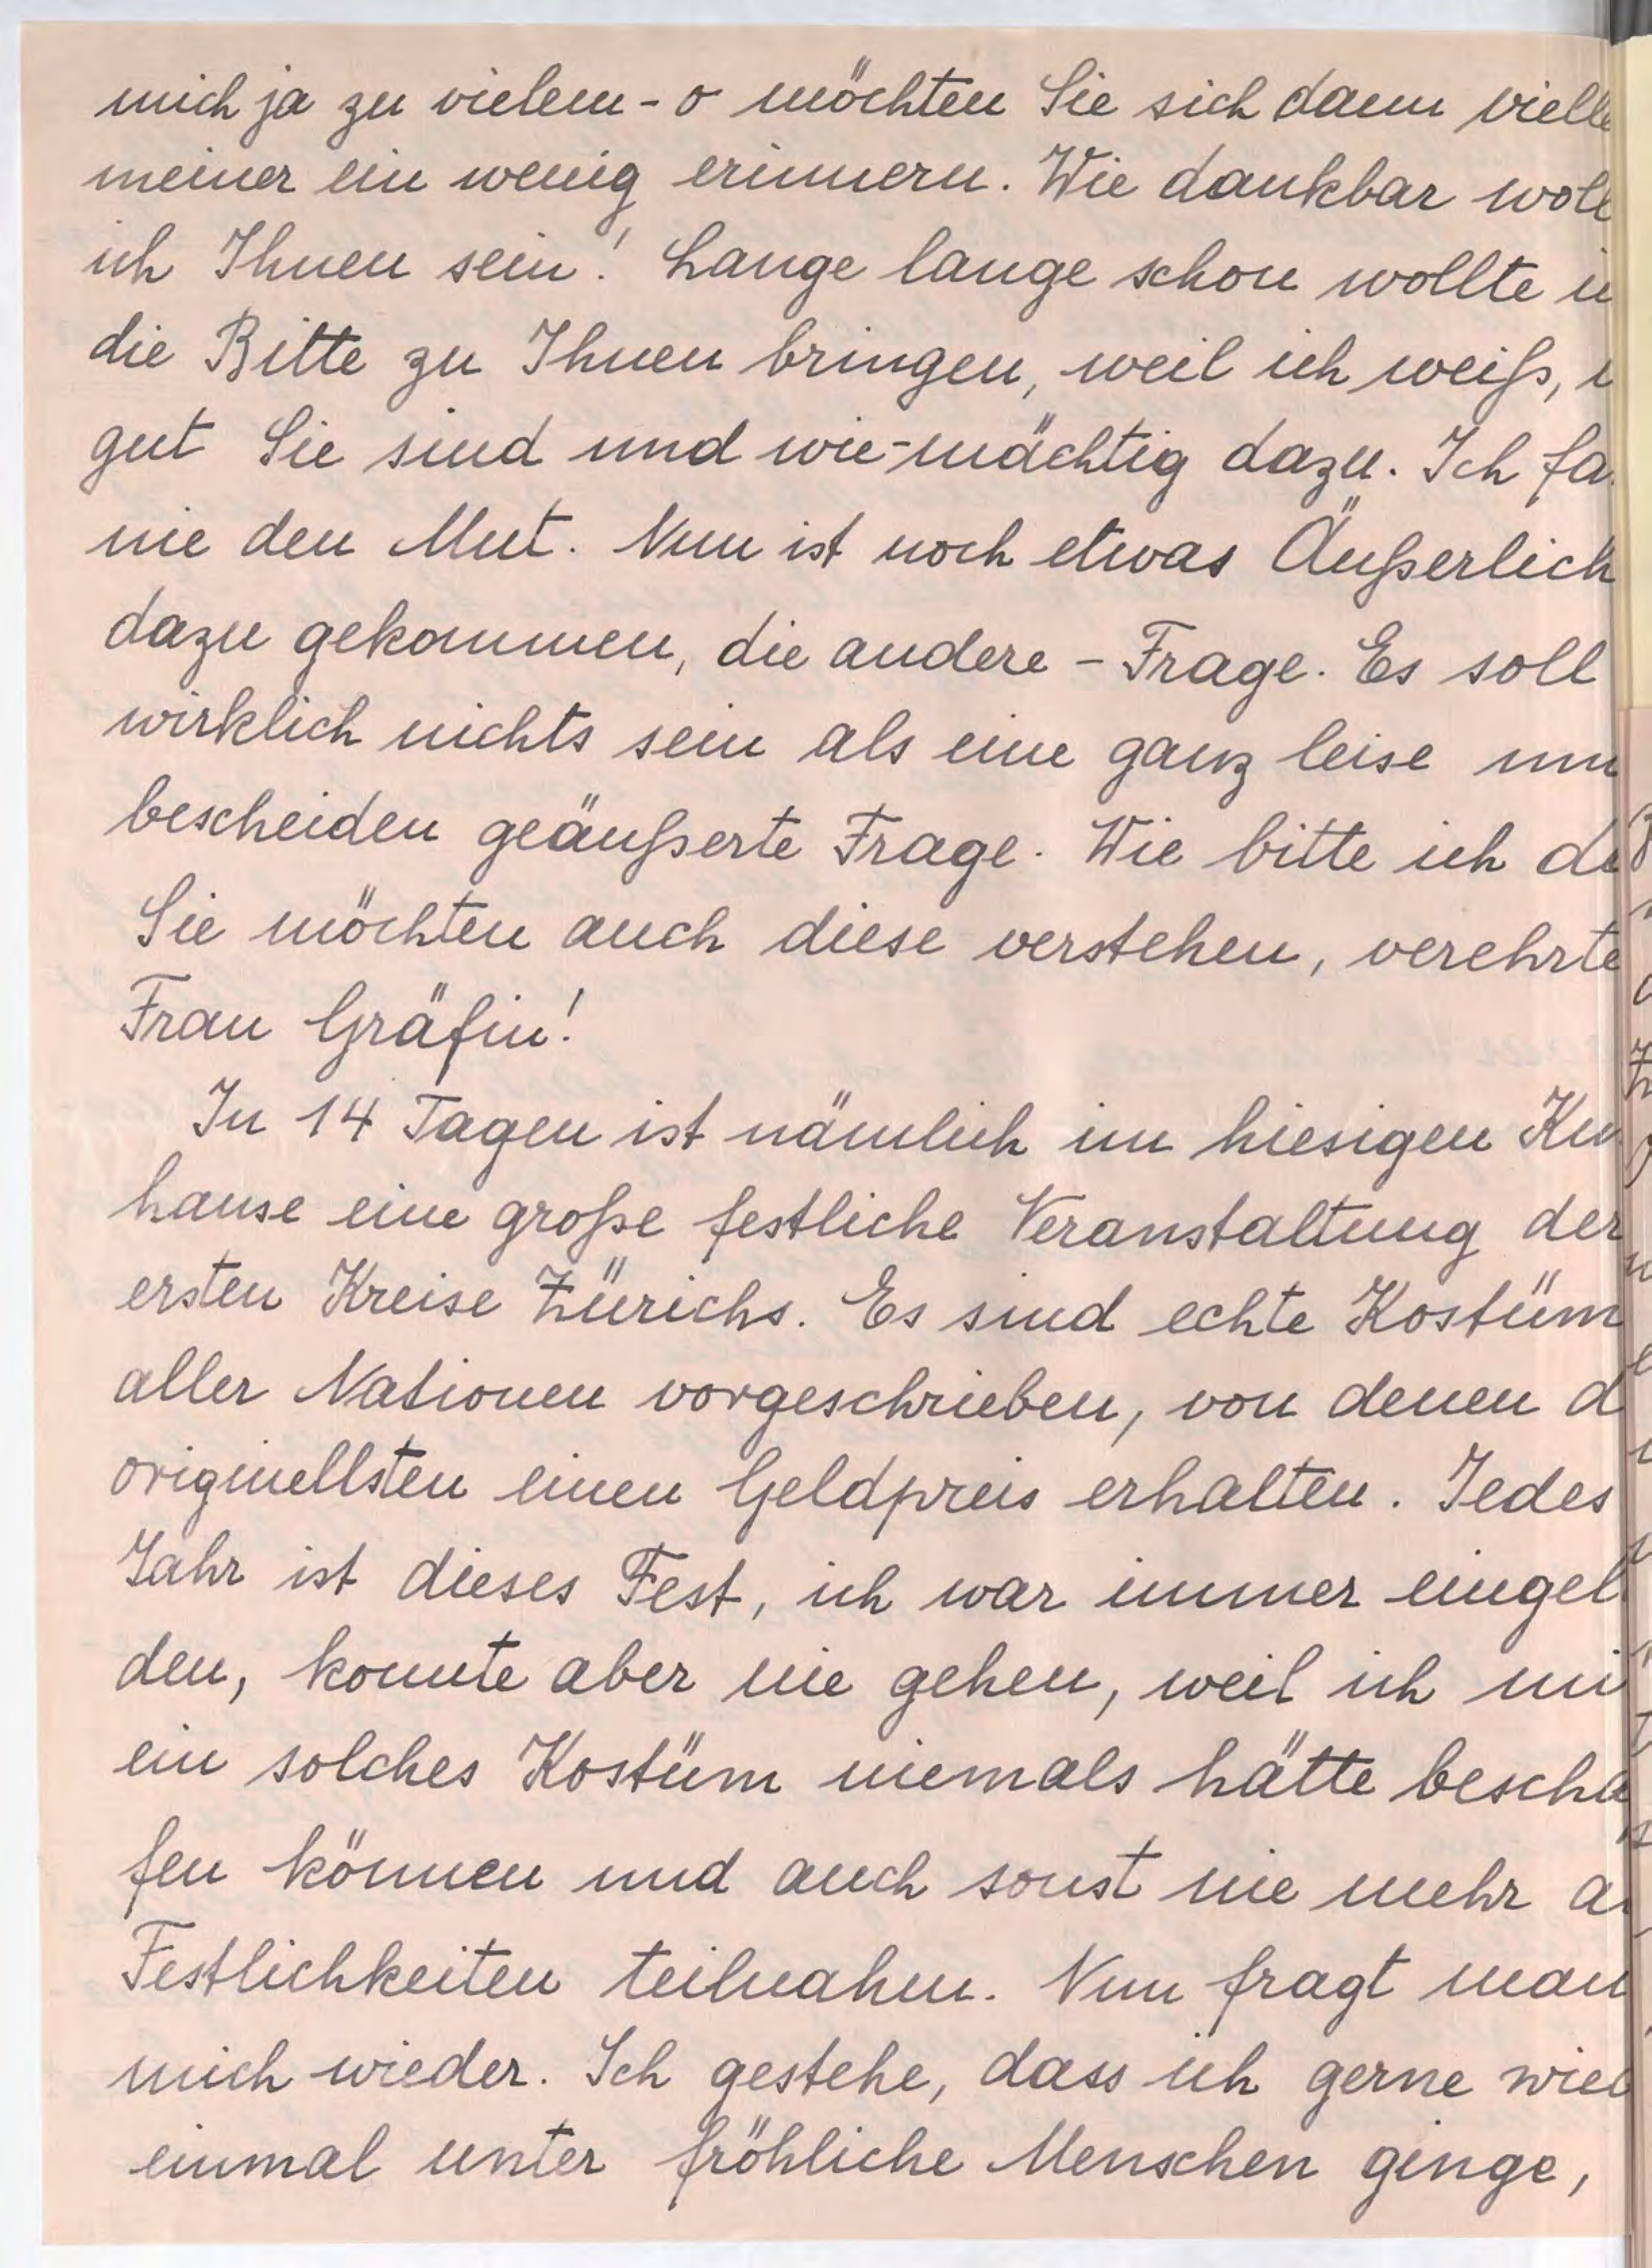 mich ja zu vielem - o möchten Sie sich dann vielle
meiner ein wenig erinnern. Wie dankbar woll
ich Ihnen sein! Lange lange schon wollte i
die Bitte zu Ihnen bringen, weil ich weiß,
gut Sie sind und wie-mächtig dazu. Ich fa
nie den Mut. Nun ist noch etwas Äußerlich
dazu gekommen, die andere - Frage. Es soll
wirklich nichts sein als eine ganz leise un
bescheiden geäußerte Frage. Wie bitte ich
Sie möchten auch diese verstehen, verehrte
Frau Gräfin!
In 14 Tagen ist nämlich im hiesigen Ku
hause eine große festliche Veranstaltung der
ersten Kreise Zürichs. Es sind echte Kostüm
aller Nationen vorgeschrieben, von denen d
originellsten einen Geldpreis erhalten. Jedes
Jahr ist dieses Fest, ich war immer eingel
den, konnte aber nie gehen, weil ich mi
ein solches Kostüm niemals hätte beschа
fen können und auch sonst nie mehr a
Festlichkeiten teilnahm. Nun fragt man
mich wieder. Ich gestehe, dass ich gerne wied
einmal unter fröhliche Menschen ginge,